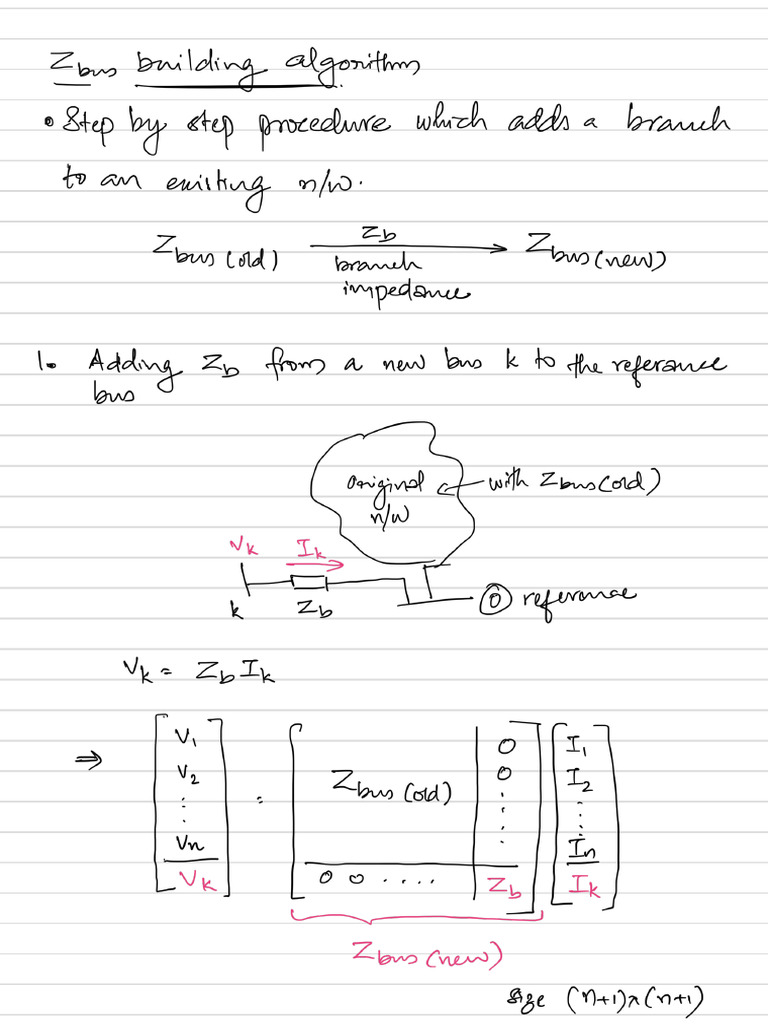 Zbus building algorithm
• Step by step procedure which adds a branch
to an existing n/w.
Zbus(old) Zb branch impedance → Zbus(new)
1. Adding Zb from a new bus k to the referance
bus
original n/w ← with Zbus(old)
Vk Ik
k Zb ⓪ referance
Vk = Zb Ik
⇒ [V1 V2 ⋮ Vn Vk] = [Zbus(old) 0 0 ⋮ ; 0 0 .... Zb] [I1 I2 ⋮ In Ik]
Zbus(new)
size (n+1)x(n+1)